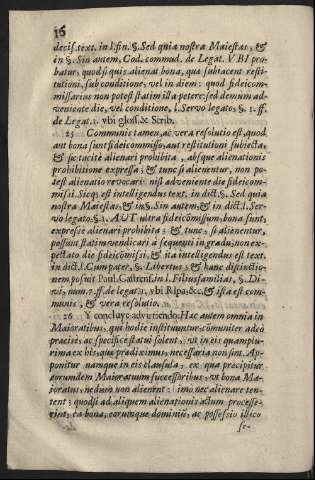 16
decis. text. in l. fin. §. Sed quia nostra Maiestas, &
in §. Sin autem, Cod. commud. de Legat. VBI pro-
batur, quod si quis alienat bona, quæ subiacent resti-
tutioni, sub conditione, vel in diem: quod fideicom-
missarius non potest statim illa petere: sed demum ad-
veniente die, vel conditione, l. Servo legato, §. 1. ff.
de Legat. 1. vbi gloss. & Scrib.
25 Communis tamen, ac vera resolutio est, quod
aut bona sunt fideicommisso, aut restitutioni subiecta,
& sic tacitè alienari prohibita, absque alienationis
prohibitione expressa; & tunc si alienentur, non po-
test alienatio revocari: nisi adveniente die fideicom-
missi. Sicq; est intelligendus text. in dict. §. Sed quia
nostra Maiestas, & in §. Sin autem, & in dict. l. Ser-
vo legato, §. 1. AUT ultra fideicõmissum, bona sunt,
expressè alienari prohibita; & tunc, si alienentur,
possunt statim vendicari à sequenti in gradu; non ex-
pectato die fideicõmissi, & ita intelligendus est text.
in dict. l. Cum pater, §. Libertus; & hanc distinctio-
nem posuit Paul. Castrens. in l. Filiusfamilias, §. Di-
vi, num. 7. ff. de legat. 1. vbi Ripa, &c. & ista est com-
munis, & vera resolutio.
26 Y concluye advirtiendo: Hac autem omnia in
Maioratibus, qui hodie instituuntur, cõmuniter adeò
præcise, ac specificè statui solent, vt in eis quamplu-
rima ex his, quæ prædiximus, necessaria non sint. Ap-
ponitur namque in eis clausula, ex qua præcipitur
eorumdem Maioratuum successoribus, vt bona Ma-
ioratus, nedum non alienent: imo nec alienare ten-
tent: quod si ad aliquem alienationis actum processe-
rint, ea bona, eorumque dominiũ, ac possessio illico
se-